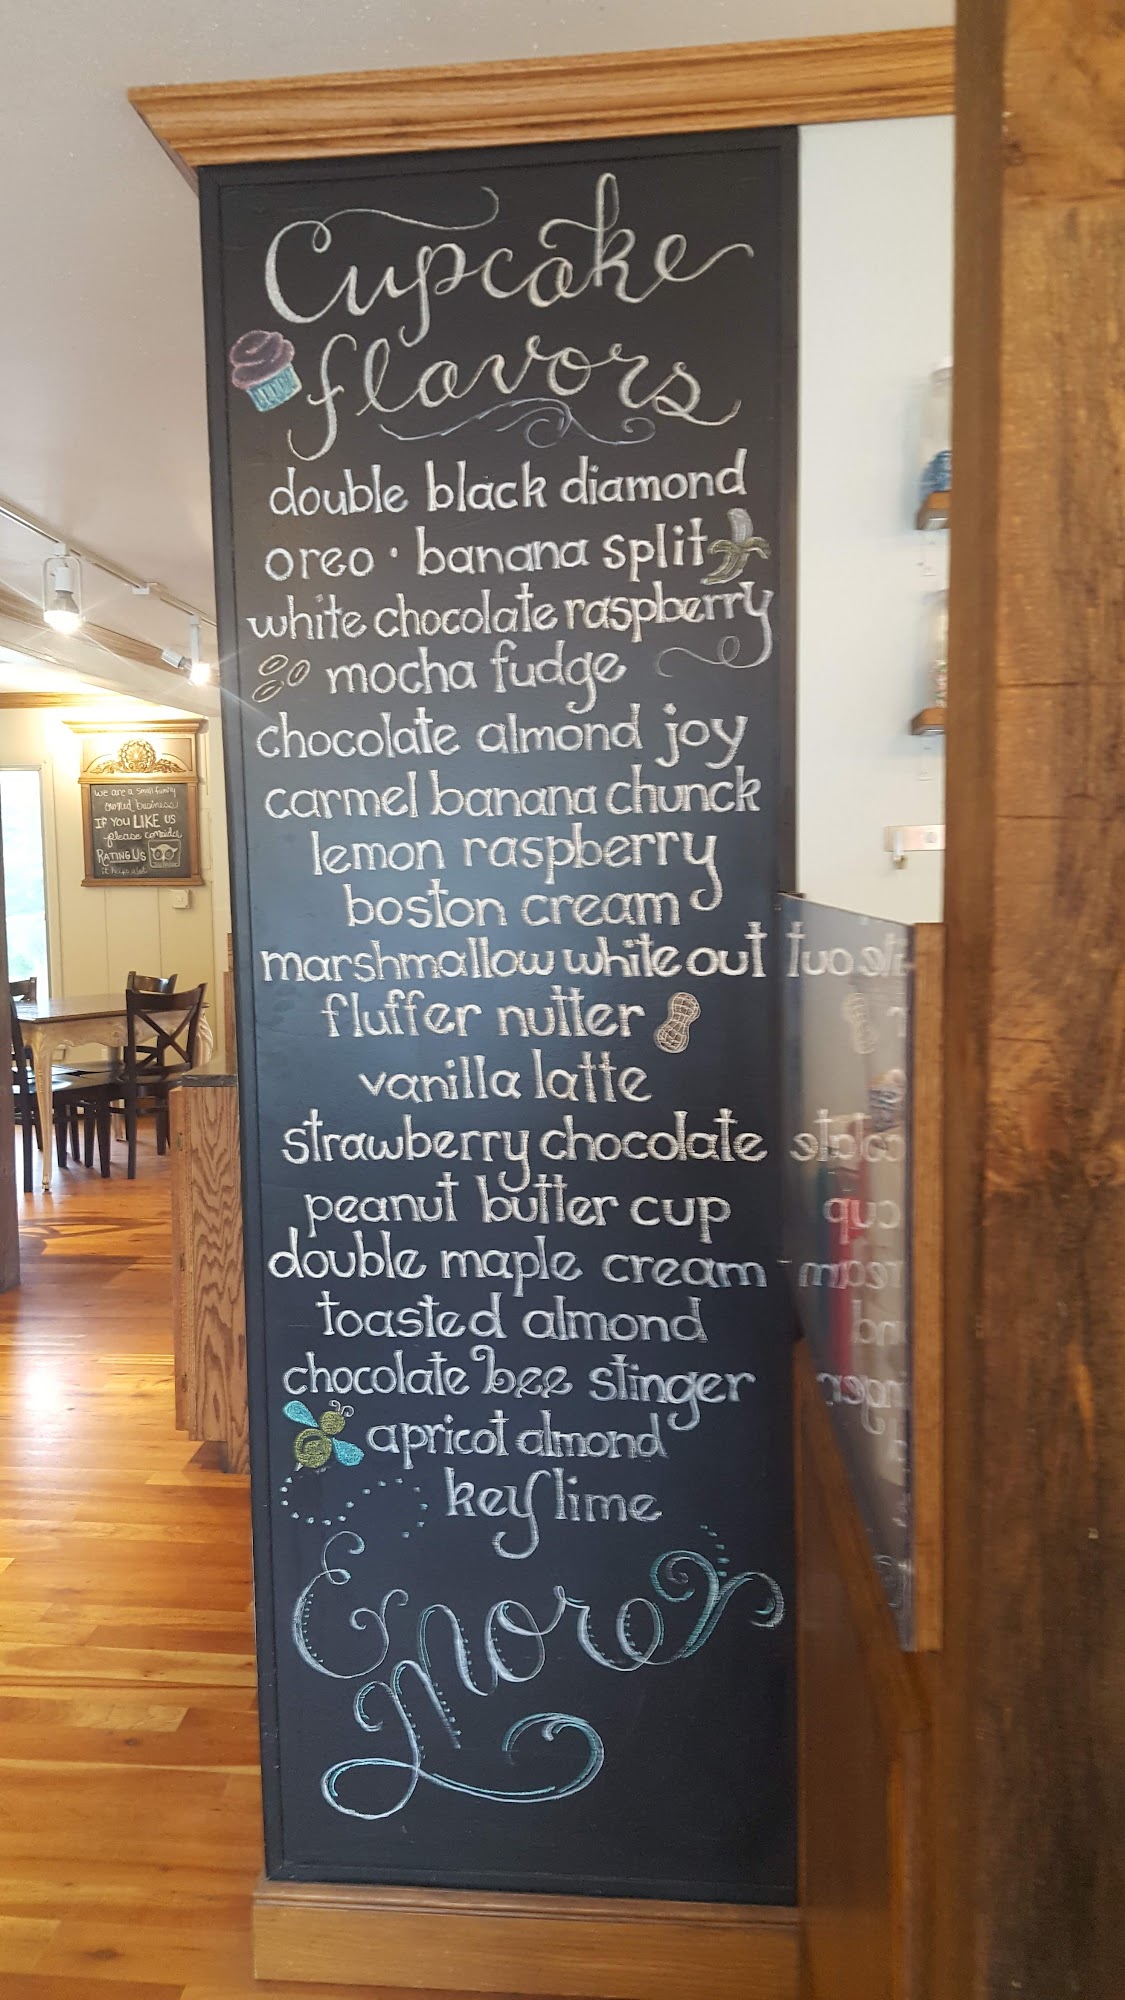 Cupcake
flavors
double black diamond
oreo · banana split
white chocolate raspberry
mocha fudge
chocolate almond joy
carmel banana chunck
lemon raspberry
boston cream
marshmallow white out
fluffer nutter
vanilla latte
strawberry chocolate
peanut butter cup
double maple cream
toasted almond
chocolate bee stinger
apricot almond
key lime
& more
we are a small family
owned business
IF YOU LIKE US
please consider
RATING US
it helps alot